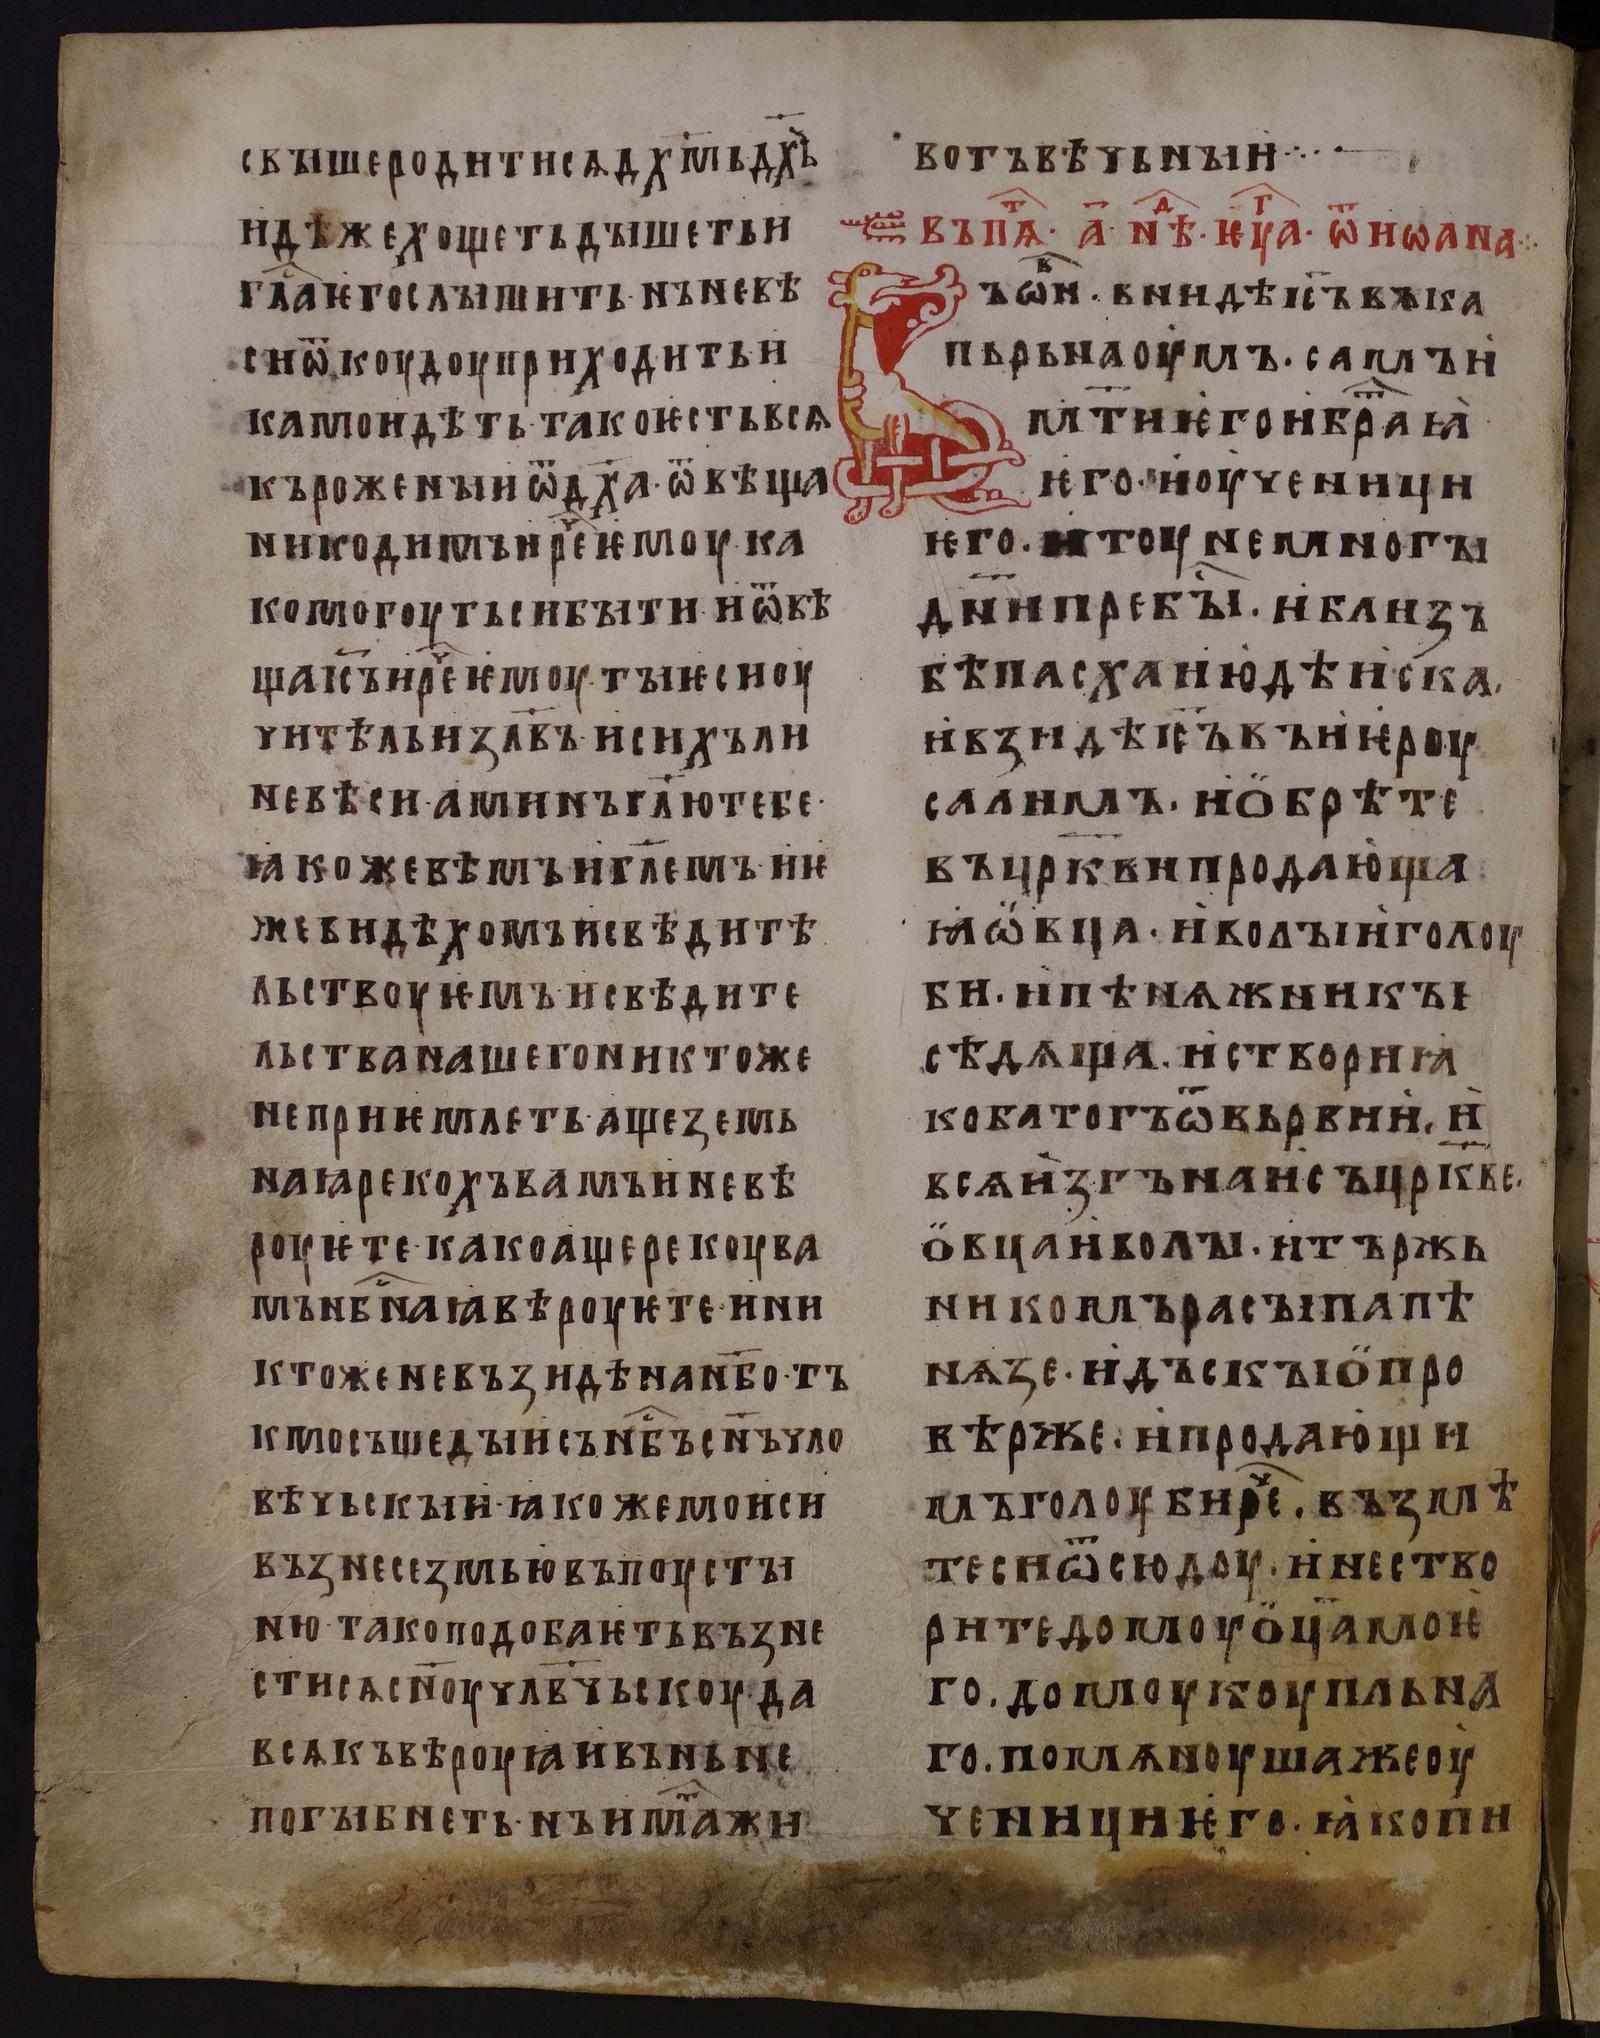 свышеродитисѧдх҃мьдх҃ъ
идѣжехощетьдышетьи
гл҃аѥгослышить·нъневѣ
сиѿкоудоуприходитьи
камоидѣть·такоѥстьвсѧ
къроженыиѿдх҃а·ѿвѣща
никодимъирⷱ҇еѥмоу·ка
комогоутьсибыти·иѿвѣ
щаіс҃ъирⷱ҇еѥмоу·тыѥсиоу
чительиꙁл҃въ·исихъли
невѣси·аминъгл҃ютебе·
ꙗкожевѣмъигл҃емъ·иѥ
жевидѣхомъисвѣдитѣ
льствоуѥмъ·исвѣдите
льстванашегониктоже
неприѥмлеть·ащеꙁемь
наꙗрекохъвамъиневѣ
роуѥте·какоащерекоува
мън҃бⷭ҇наꙗвѣроуѥте·ини
ктоженевъꙁидѣнан҃бо·тъ
кмосъшедыисън҃бⷭ҇ъсн҃ъчло
вѣчьскыи·ꙗкожемоиси
въꙁнесеꙁмьювъпоусты
ню·такоподобаѥтьвъꙁне
стисѧсн҃оучл҃вчьскоу·да
всѧкъвѣроуꙗивъньне
погыбнеть·нъимⷮ҇ажи
вотъвѣчьныи
въпѧⷮ҇·а҃·нⷣ҇ѣ·ѥуⷢ҇а·ѿиѡана
ъѡⷡ҇н·внидѣіс҃ъвѫка
пьрьнаоумъ·самъи
мт҃иѥгоибрⷮ҇аꙗ
ѥго·иоученици
ѥго·итоунемногы
дн҃ипребыⷭ҇·иблиꙁъ
бѣпасхаиюдѣиска·
ивꙁидѣіс҃ъвъиѥроу
салимъ·иобрѣте
въцр҃квипродающа
ꙗѡвца·иволыиголоу
би·ипѣнѧжникы
сѣдѧща·истворибꙗ
кобатогъѿвьрвии·и
всѧиꙁгънаисъцр҃кве·
овцаиволы·итържь
никомърасыпапѣ
нѧꙁе·идъскыопро
вѣрже·ипродающи
мъголоубирⷱ҇е·въꙁмѣ
тесиѿсюдоу·инество
ритедомоуоц҃амоѥ
го·домоукоупльна
го·помѧноушажеоу
ченициѥго·ꙗкопи